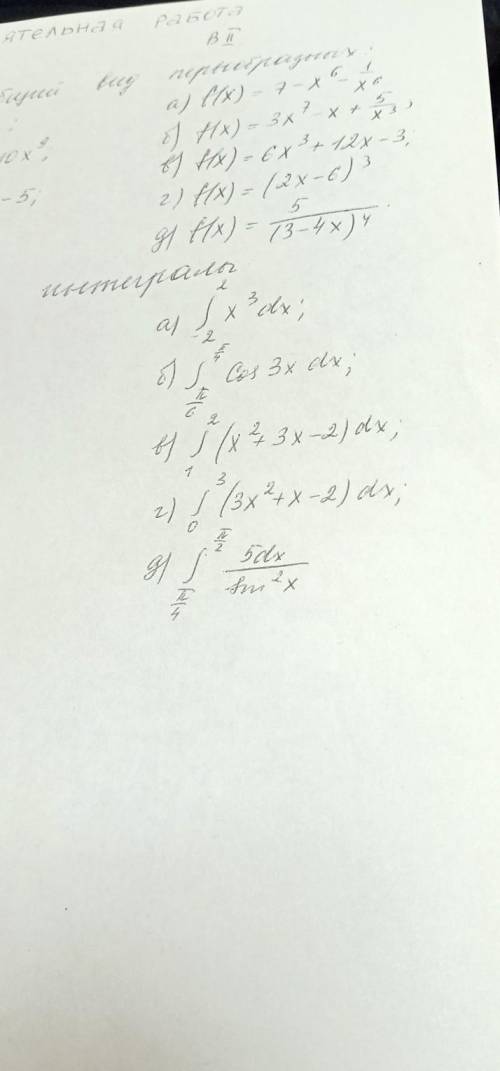 РАБОТА
В II
вид первообразных:
а) f(x) = 7 - x⁶ - 1/x⁶
10x⁹;
б) f(x) = 3x⁷ - x + 5/x³;
-5;
в) f(x) = 6x³ + 12x - 3;
г) f(x) = (2x - 6)³
д) f(x) = 5/(3-4x)⁴.
интегралы
а) ∫_{-2}^{2} x³dx;
б) ∫_{π/6}^{π/4} cos 3x dx;
в) ∫_{1}^{2} (x² + 3x - 2) dx;
г) ∫_{0}^{3} (3x² + x - 2) dx;
д) ∫_{π/4}^{π/2} 5dx/sin²x